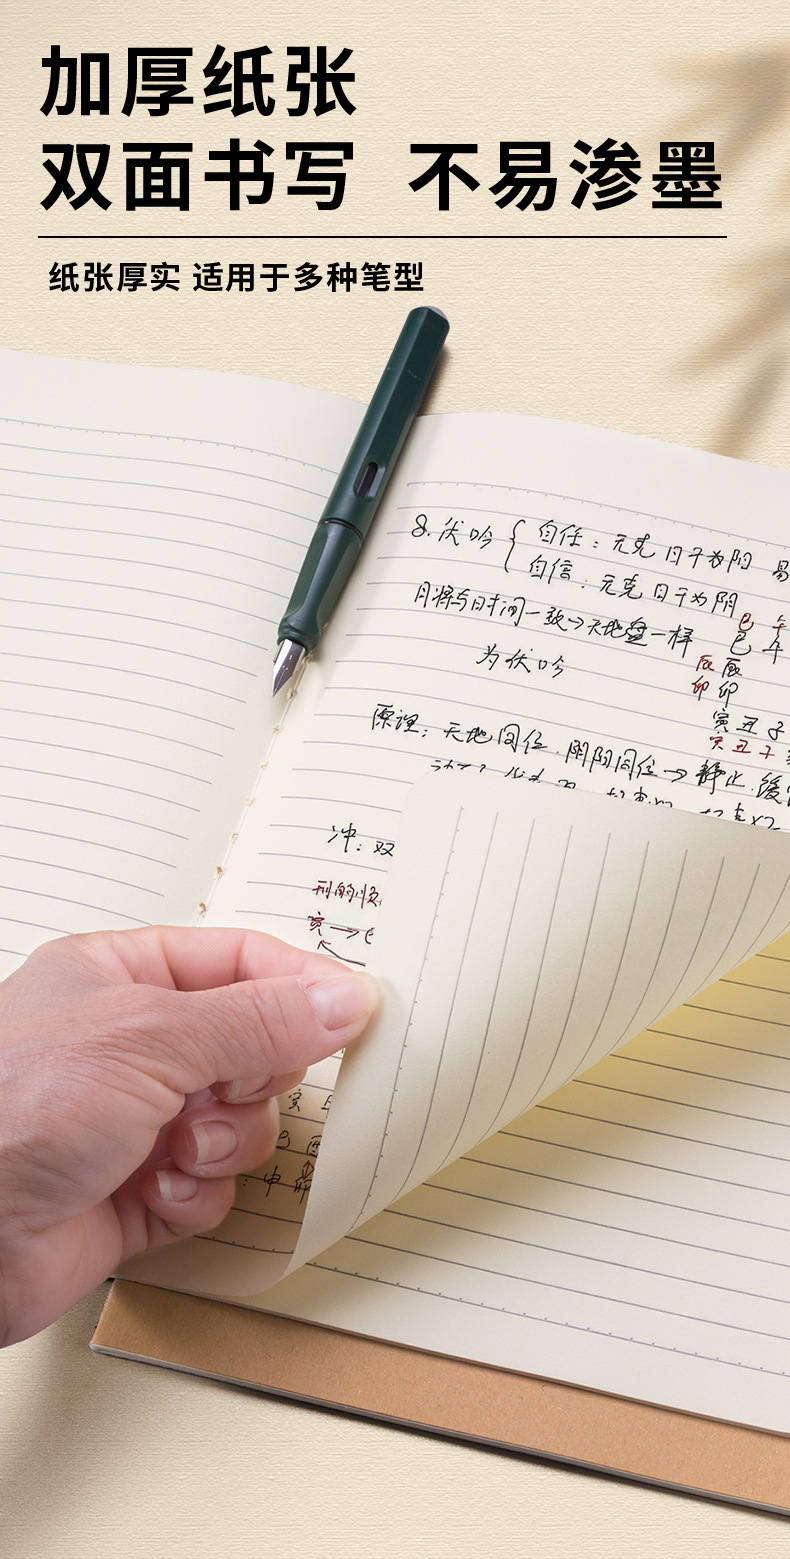 加厚纸张
双面书写 不易渗墨
纸张厚实 适用于多种笔型
8.伏吟 { 自任：元克 日干为阳 易
自信：元克 日干为阴
月将与时间一致→天地盘一样
巳 午
巳 午
为伏吟
辰 辰
卯 卯
寅 丑 子
寅 丑 子
原理：天地同位.阴阳同位→静止.後
冲：双
刑的顺
寅→
寅
酉
：申